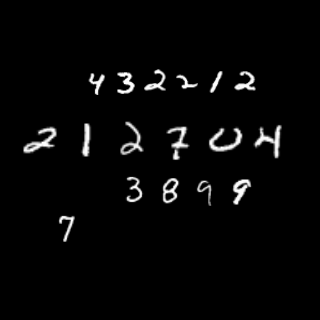 432212
212704
3899
7